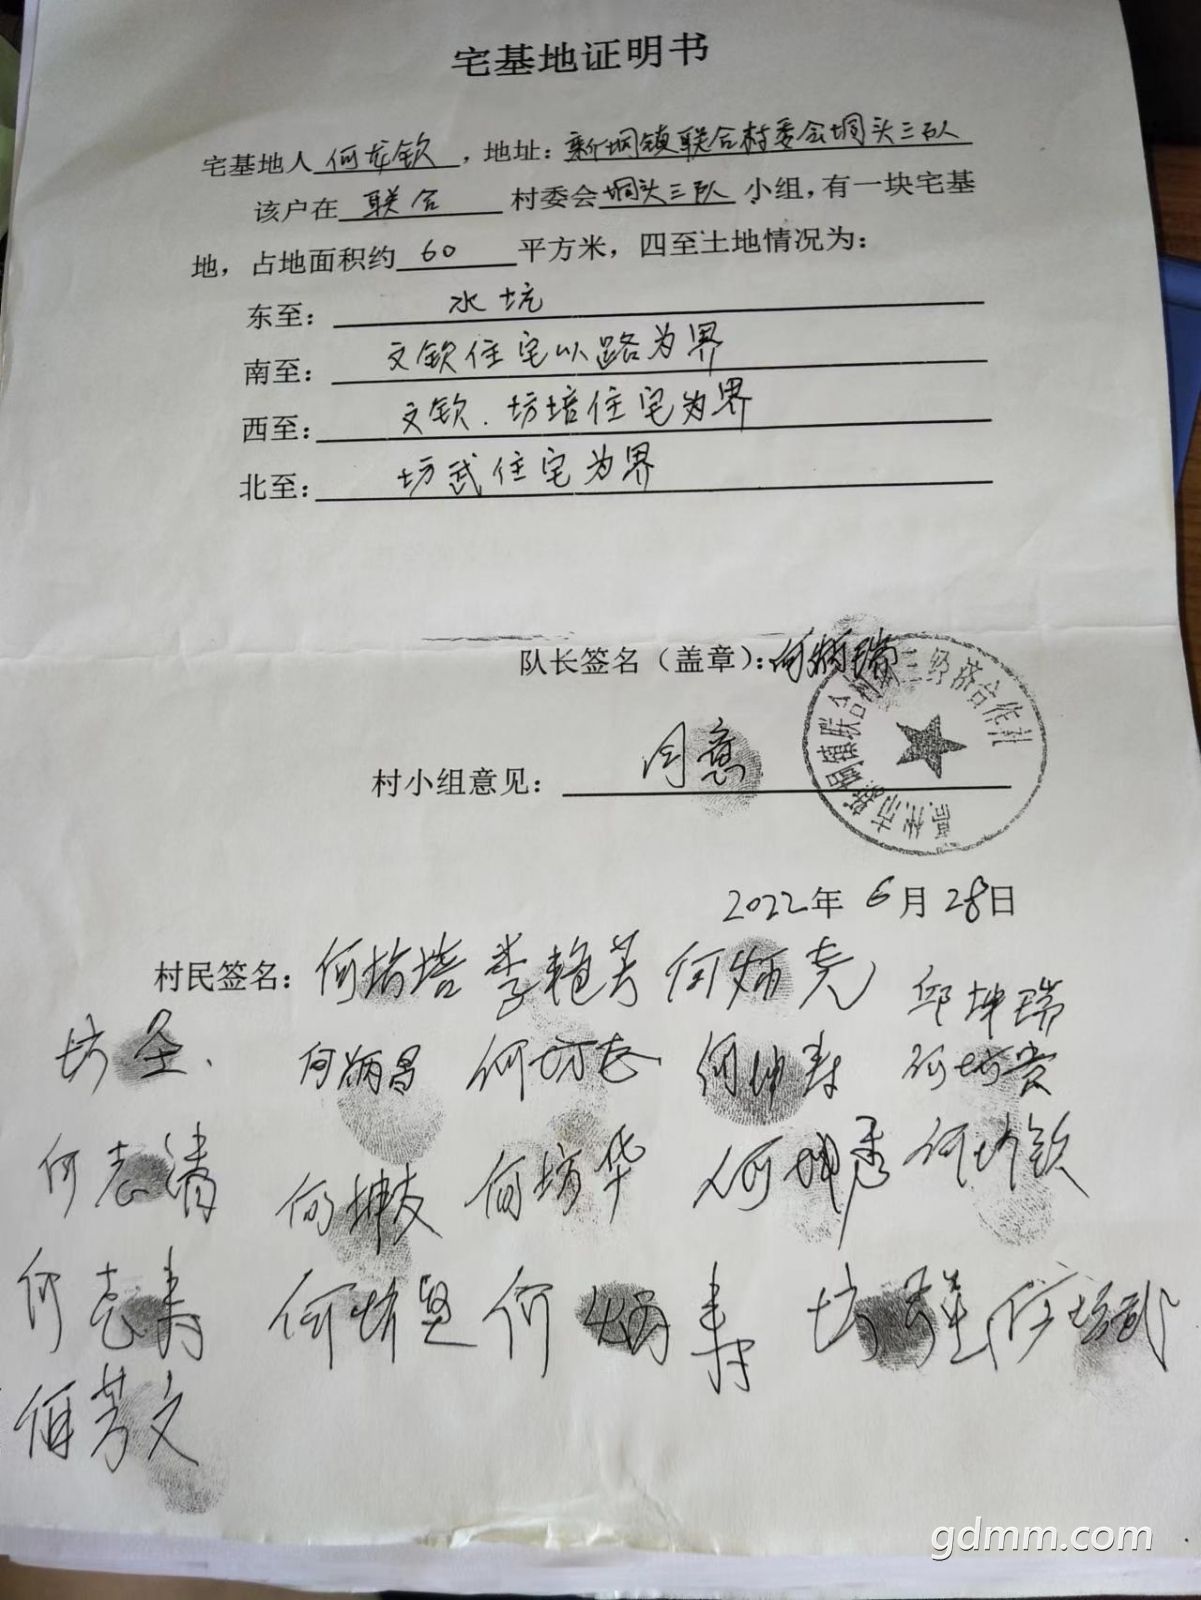 宅基地证明书
宅基地人何龙钦，地址：新垌镇联合村委会垌头三队
该户在 联合 村委会垌头三队 小组，有一块宅基
地，占地面积约 60 平方米，四至土地情况为：
东至： 水坑
南至： 文钦住宅以路为界
西至： 文钦．坊培住宅为界
北至： 坊武住宅为界
队长签名（盖章）：何炳瑞
新垌镇联合村 三经济合作社
村小组意见： 同意
2022年 6月 28日
村民签名：何坊培 李艳芳 何炳尧 邱坤瑞
坊圣． 何炳昌 何坊志 何坤寿 何坊贵
何志清 何坤友 何坊华 何坤秀 何坊钦
何志寿 何坊恩 何炳寿 坊 何坊武
何芳文
gdmm.com